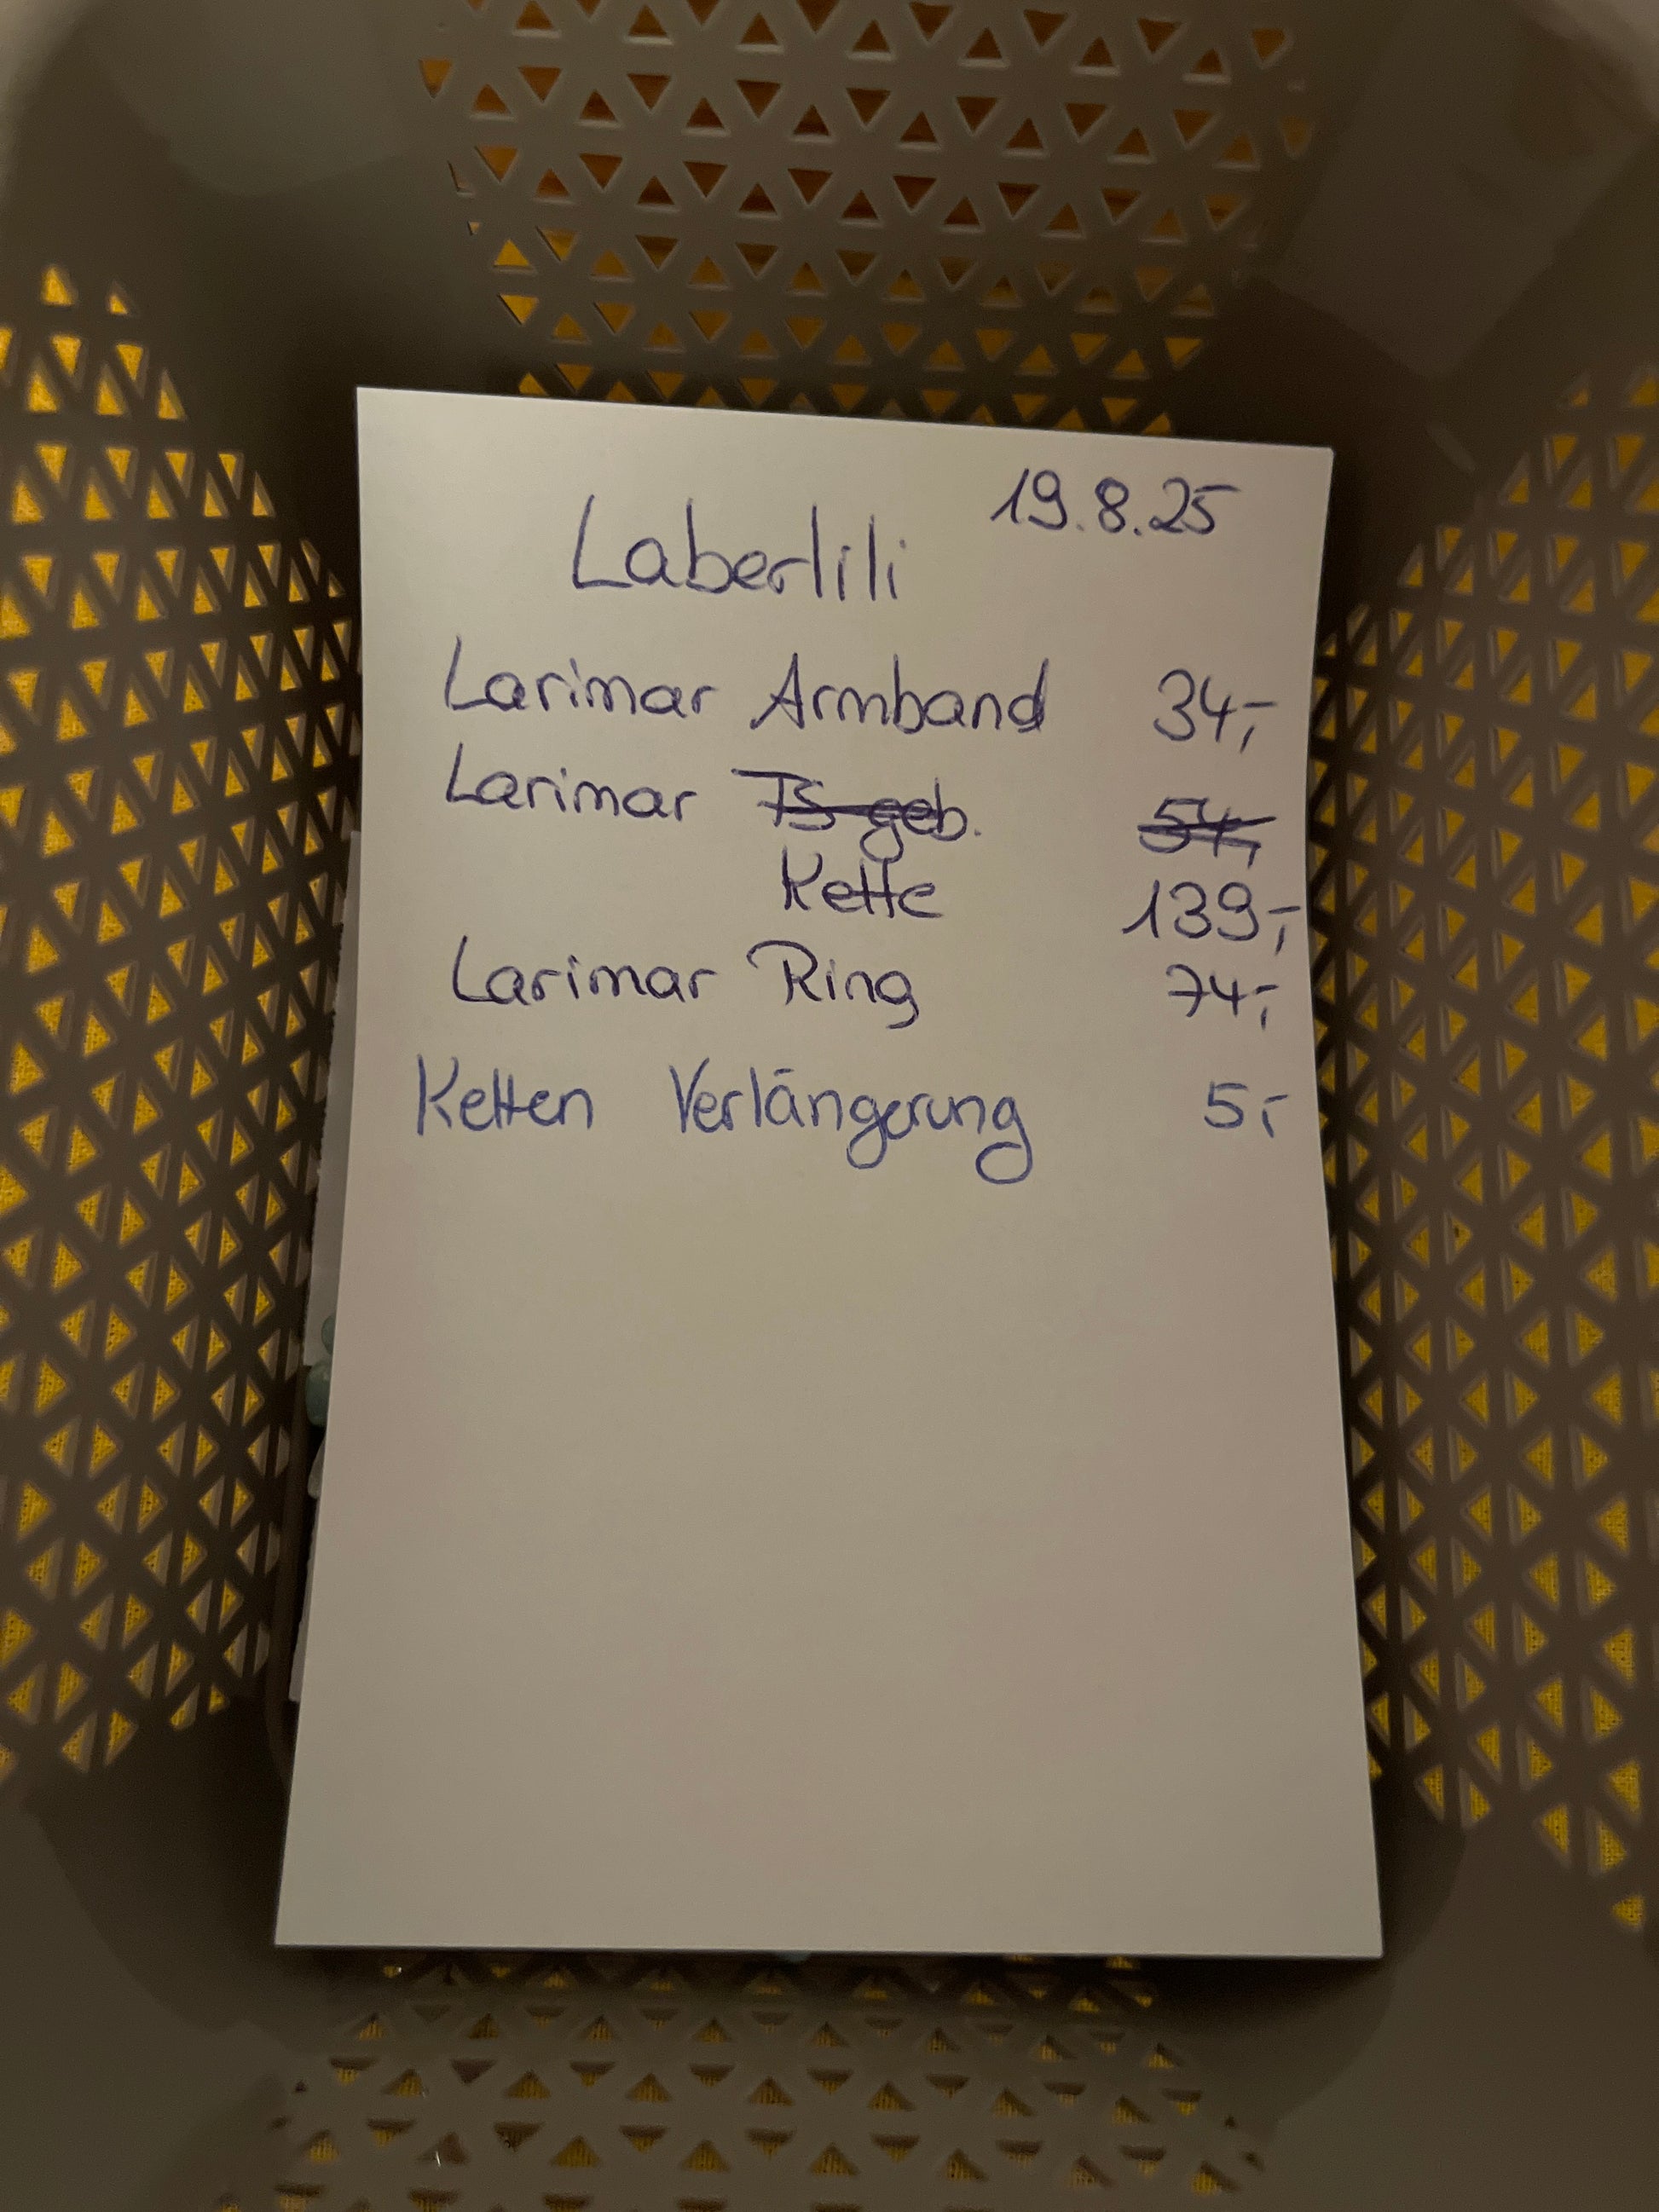 19.8.25
Laberlili
Larimar Armband 34,-
Larimar TS geb. 54,-
Kette 139,-
Larimar Ring 74,-
Ketten Verlängerung 5,-